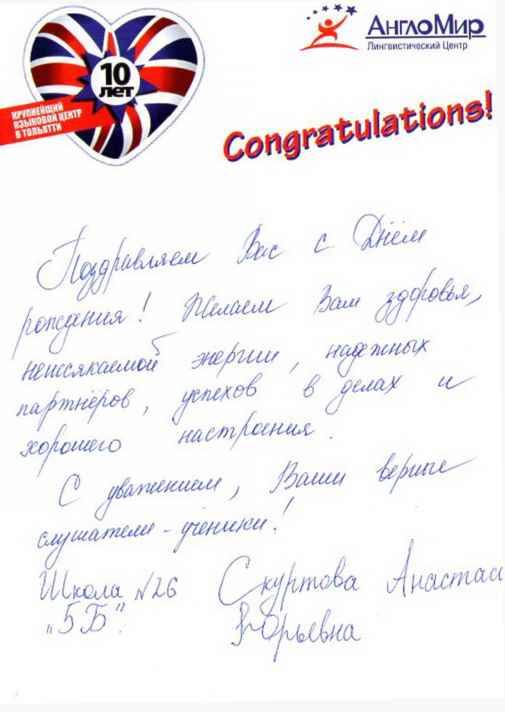 10
лет
КРУПНЕЙШИЙ
ЯЗЫКОВОЙ ЦЕНТР
В ТОЛЬЯТТИ
АнглоМир
Лингвистический Центр
Congratulations!
Поздравляем Вас с Днём
рождения! Желаем Вам здоровья,
неиссякаемой энергии, надежных
партнёров, успехов в делах и
хорошего настроения.
С уважением, Ваши верные
слушатели - ученики!
Школа №26 Скуртова Анастаси
"5Б". Юрьевна